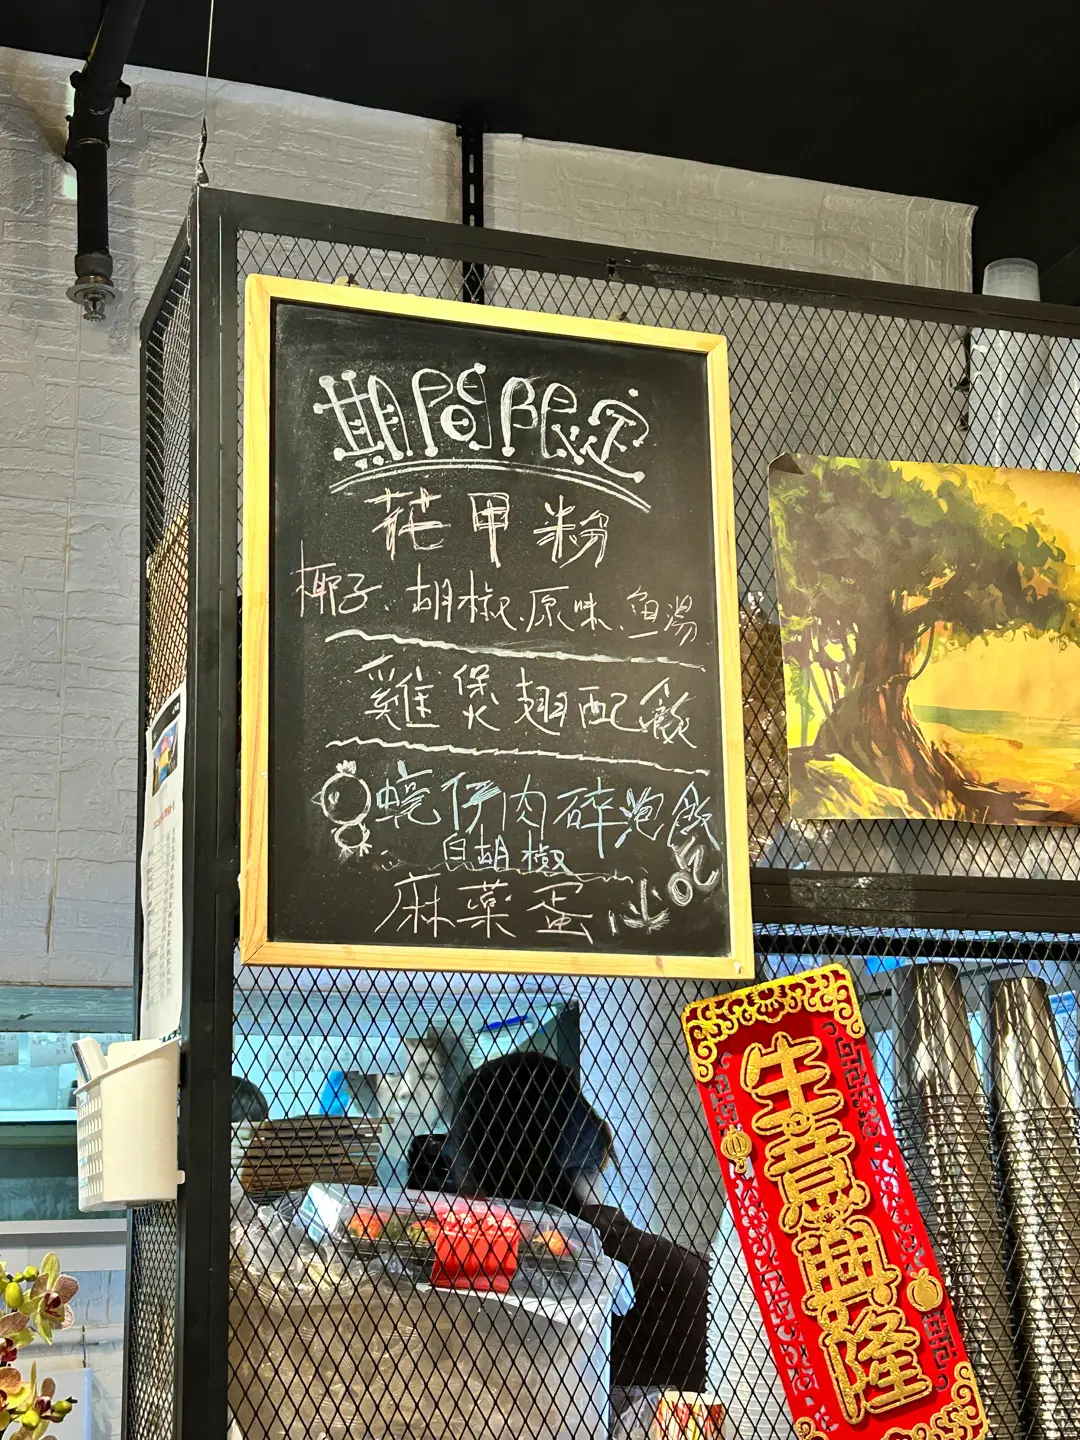 期間限定
花甲粉
椰子、胡椒、原味、魚湯
雞煲翅配飯
蠔仔肉碎泡飯
白胡椒
吃
麻藥蛋
生意興隆